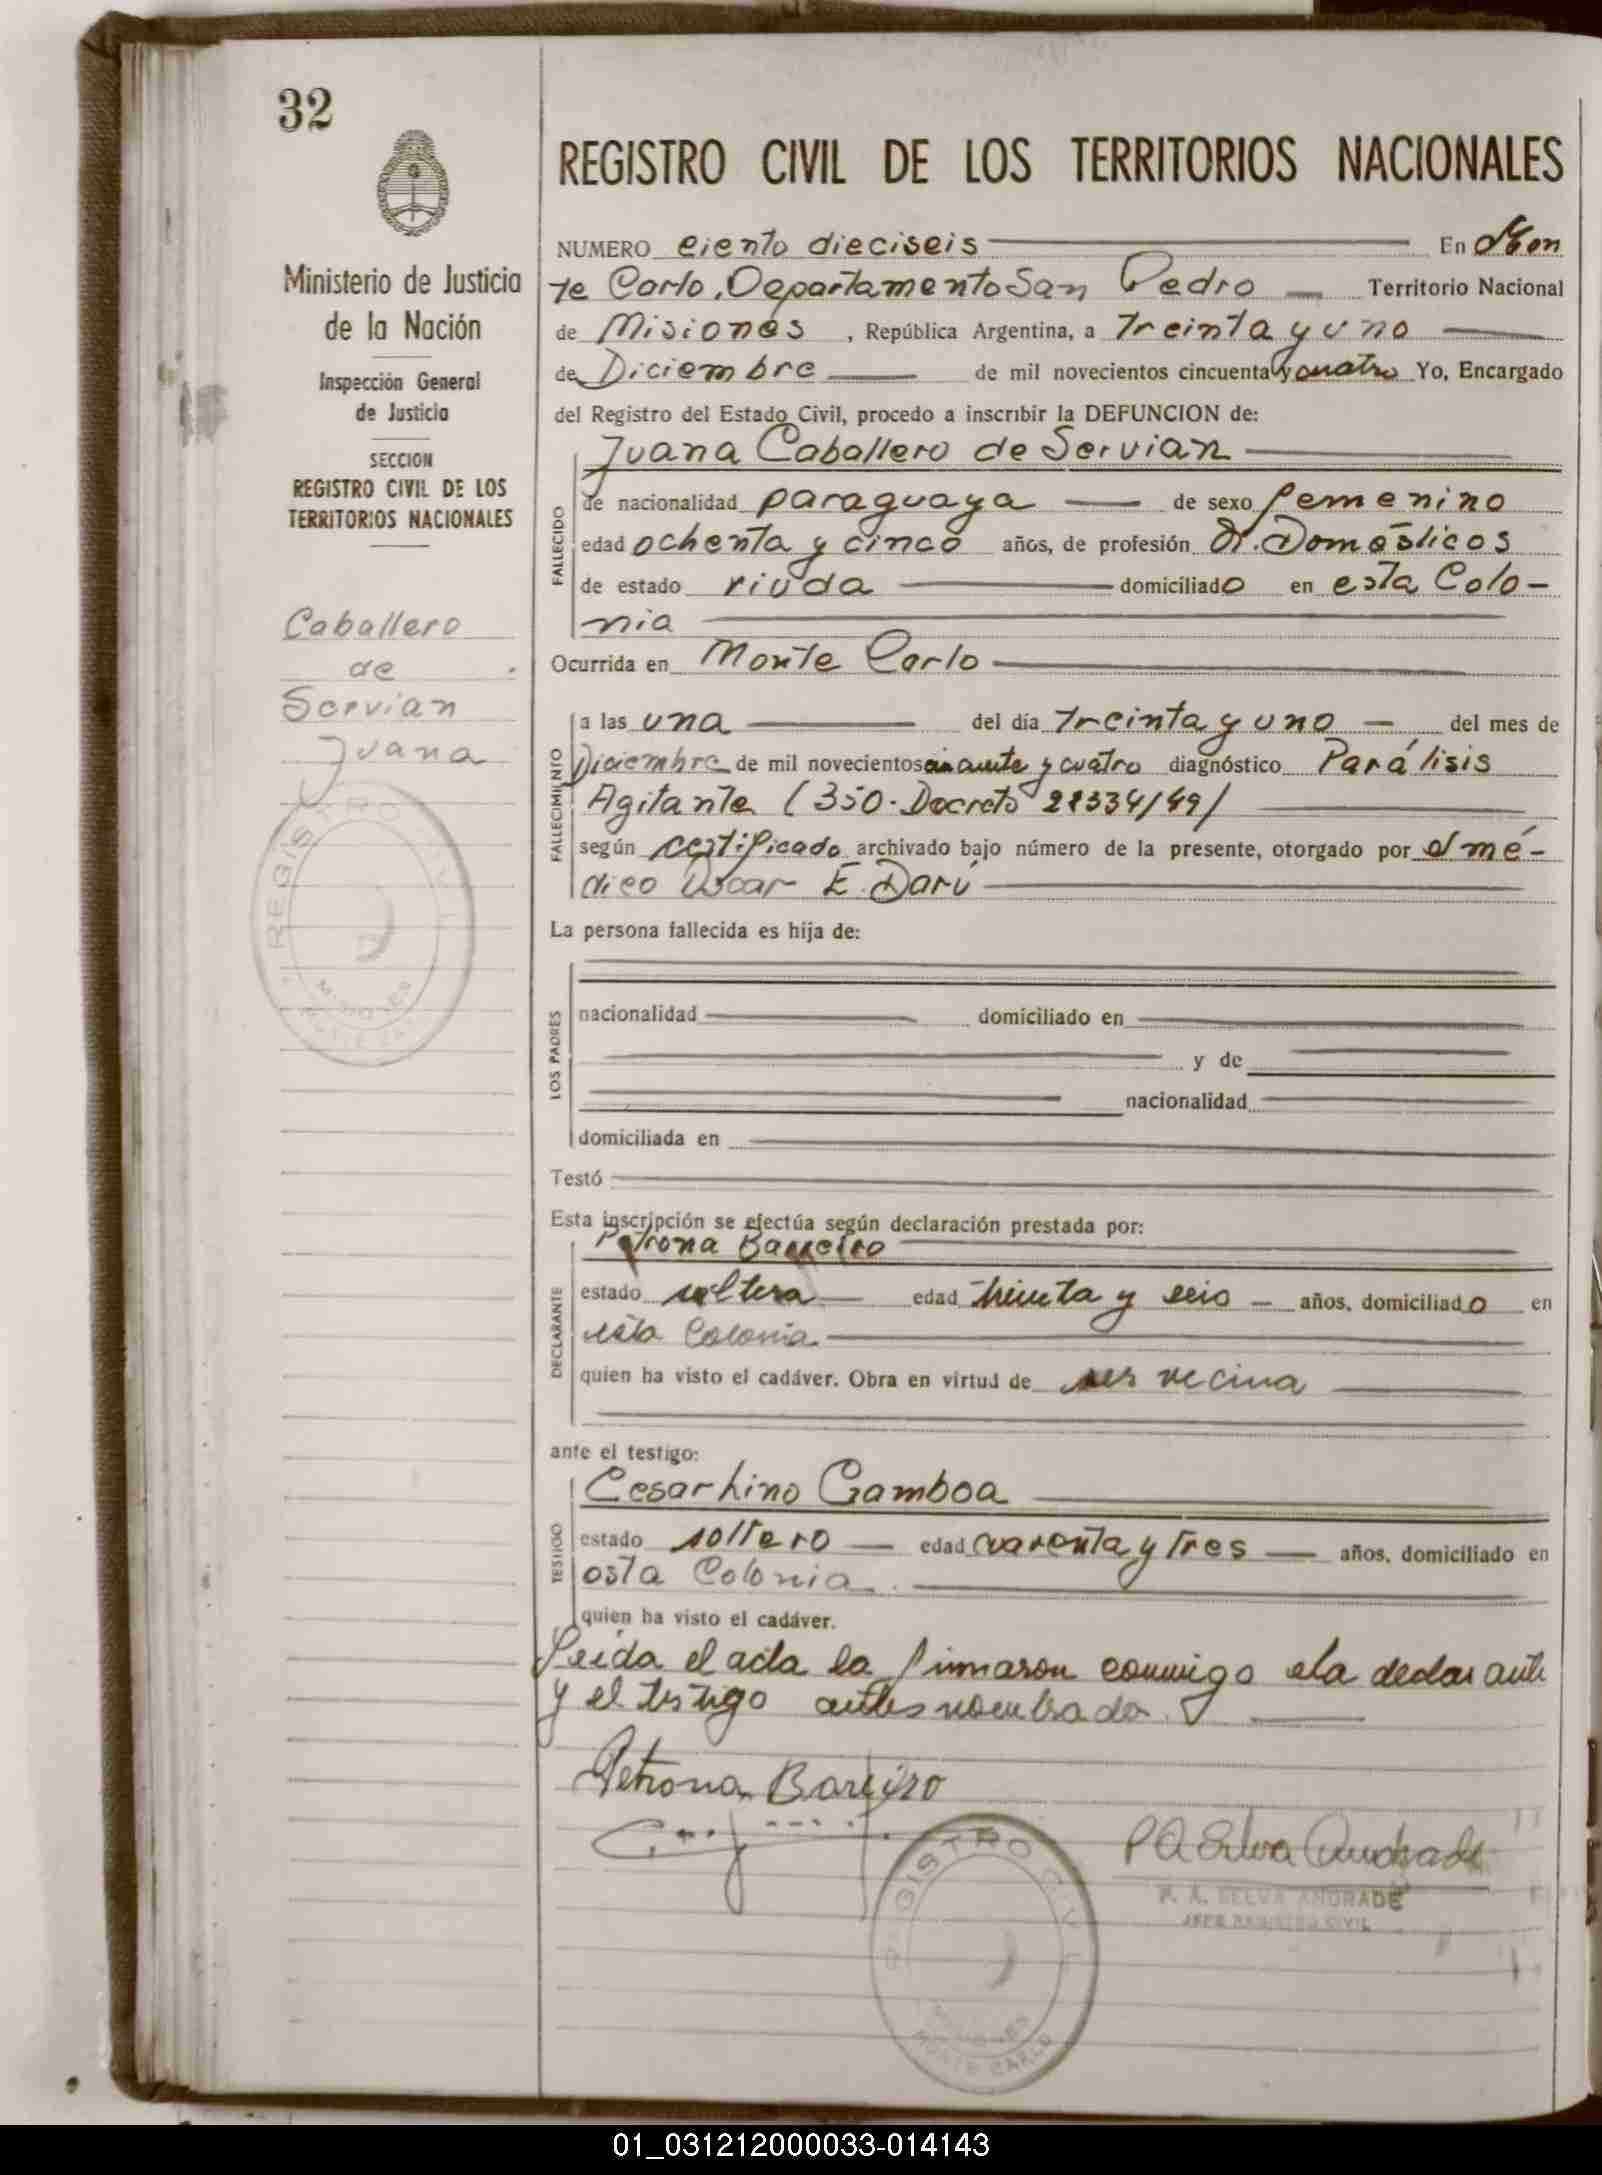 32
Ministerio de Justicia
de la Nación
Inspección General
de Justicia
SECCION
REGISTRO CIVIL DE LOS
TERRITORIOS NACIONALES
Caballero
de
Servian
Juana
REGISTRO CIVIL
MISIONES
MONTE CARLO
REGISTRO CIVIL DE LOS TERRITORIOS NACIONALES
NUMERO ciento dieciseis En Mon
te Carlo, Departamento San Pedro Territorio Nacional
de Misiones, República Argentina, a treinta y uno
de Diciembre de mil novecientos cincuenta y cuatro Yo, Encargado
del Registro del Estado Civil, procedo a inscribir la DEFUNCION de:
Juana Caballero de Servian
FALLECIDO
de nacionalidad paraguaya de sexo femenino
edad ochenta y cinco años, de profesión Q. Domésticos
de estado viuda domiciliado en esta Colo-
nia
Ocurrida en Monte Carlo
FALLECIMIENTO
a las una del día treinta y uno del mes de
Diciembre de mil novecientos cincuenta y cuatro diagnóstico Parálisis
Agitante (350. Decreto 28334/49/
según certificado archivado bajo número de la presente, otorgado por el mé-
dico Oscar E. Darú
La persona fallecida es hija de:
LOS PADRES
nacionalidad domiciliado en
y de
nacionalidad
domiciliada en
Testó
Esta inscripción se efectúa según declaración prestada por:
Petrona Barreiro
DECLARANTE
estado soltera edad treinta y seis años, domiciliado en
esta Colonia
quien ha visto el cadáver. Obra en virtud de ser vecina
ante el testigo:
Cesarhino Gamboa
TESTIGO
estado soltero edad cuarenta y tres años, domiciliado en
esta Colonia.
quien ha visto el cadáver.
Leida el acta la firmaron conmigo la declarante
y el testigo antes nombrado.
Petrona Bareiro
P A Selva Andrade
P. A. SELVA ANDRADE
JEFE REGISTRO CIVIL
REGISTRO CIVIL
MISIONES
MONTE CARLO
01_031212000033-014143